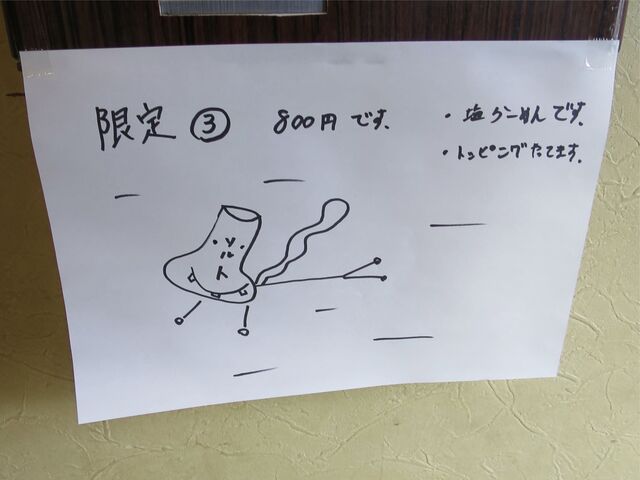 限定 ③ 800円です.
・塩らーめんです.
・トッピングたてます.
ソルト